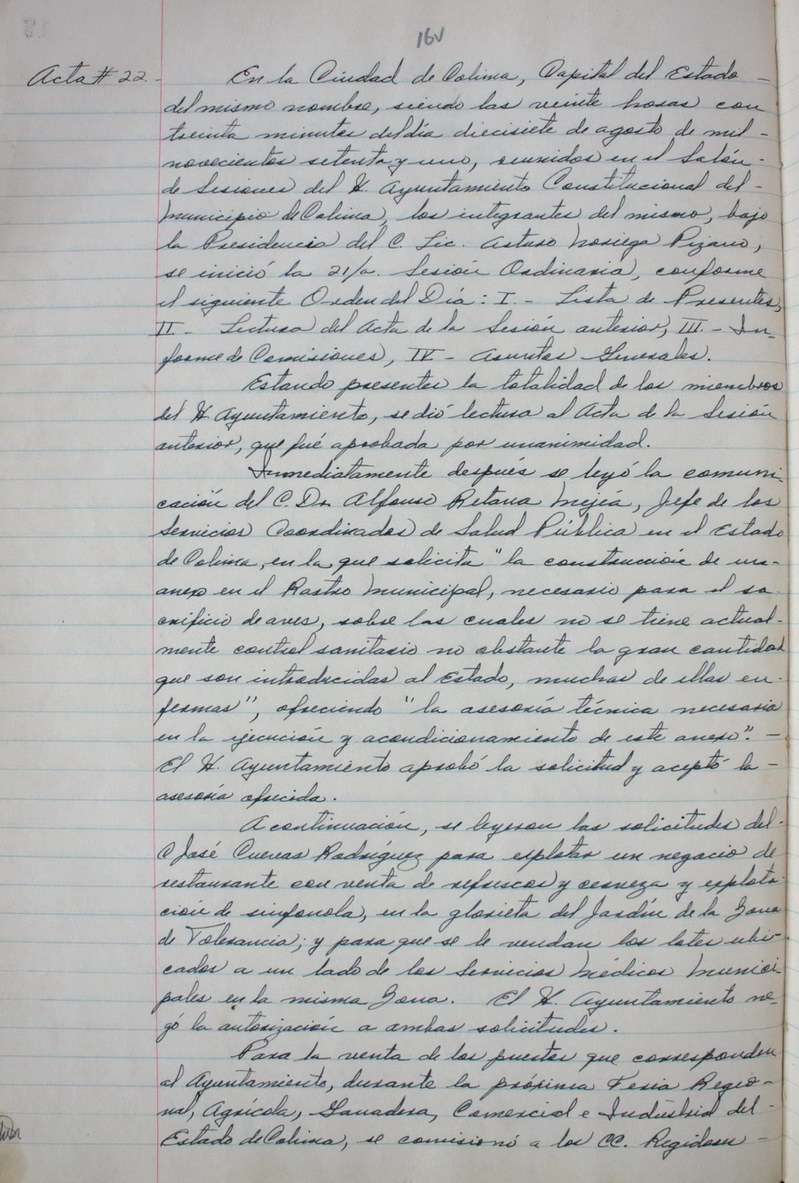 16v
Acta # 22.- En la Ciudad de Colima, Capital del Estado -
del mismo nombre, siendo las veinte horas con
treinta minutos del día diecisiete de agosto de mil -
novecientos setenta y uno, reunidos en el Salón -
de Sesiones del H. Ayuntamiento Constitucional del -
Municipio de Colima, los integrantes del mismo, bajo
la Presidencia del C. Lic. Arturo Noriega Pizano,
se inició la 21/a. Sesión Ordinaria, conforme
el siguiente Orden del Día: I.- Lista de Presentes,
II.- Lectura del Acta de la Sesión anterior, III.- In-
forme de Comisiones, IV.- Asuntos Generales.
Estando presentes la totalidad de los miembros
del H. Ayuntamiento, se dió lectura al Acta de la Sesión
anterior, que fué aprobada por unanimidad.
Inmediatamente después se leyó la comuni-
cación del C. Dr. Alfonso Retana Mejía, Jefe de los
Servicios Coordinados de Salud Pública en el Estado
de Colima, en la que solicita "la construcción de un-
anexo en el Rastro Municipal, necesario para el sa-
crificio de aves, sobre las cuales no se tiene actual-
mente control sanitario no obstante la gran cantidad
que son introducidas al Estado, muchas de ellas en-
fermas", ofreciendo "la asesoría técnica necesaria
en la ejecución y acondicionamiento de este anexo". -
El H. Ayuntamiento aprobó la solicitud y aceptó la -
asesoría ofrecida.
A continuación, se leyeron las solicitudes del -
C José Cuevas Rodríguez para explotar un negocio de
restaurante con venta de refrescos y cerveza y explota-
ción de sinfonola, en la glorieta del Jardín de la Zona
de Tolerancia; y para que se le vendan los lotes ubi-
cados a un lado de los Servicios Médicos Munici-
pales en la misma Zona. El H. Ayuntamiento ne-
gó la autorización a ambas solicitudes.
Para la venta de los puestos que corresponden
al Ayuntamiento, durante la próxima Feria Regio-
nal, Agrícola, Ganadera, Comercial e Industrial del -
Estado de Colima, se comisionó a los CC. Regidores -